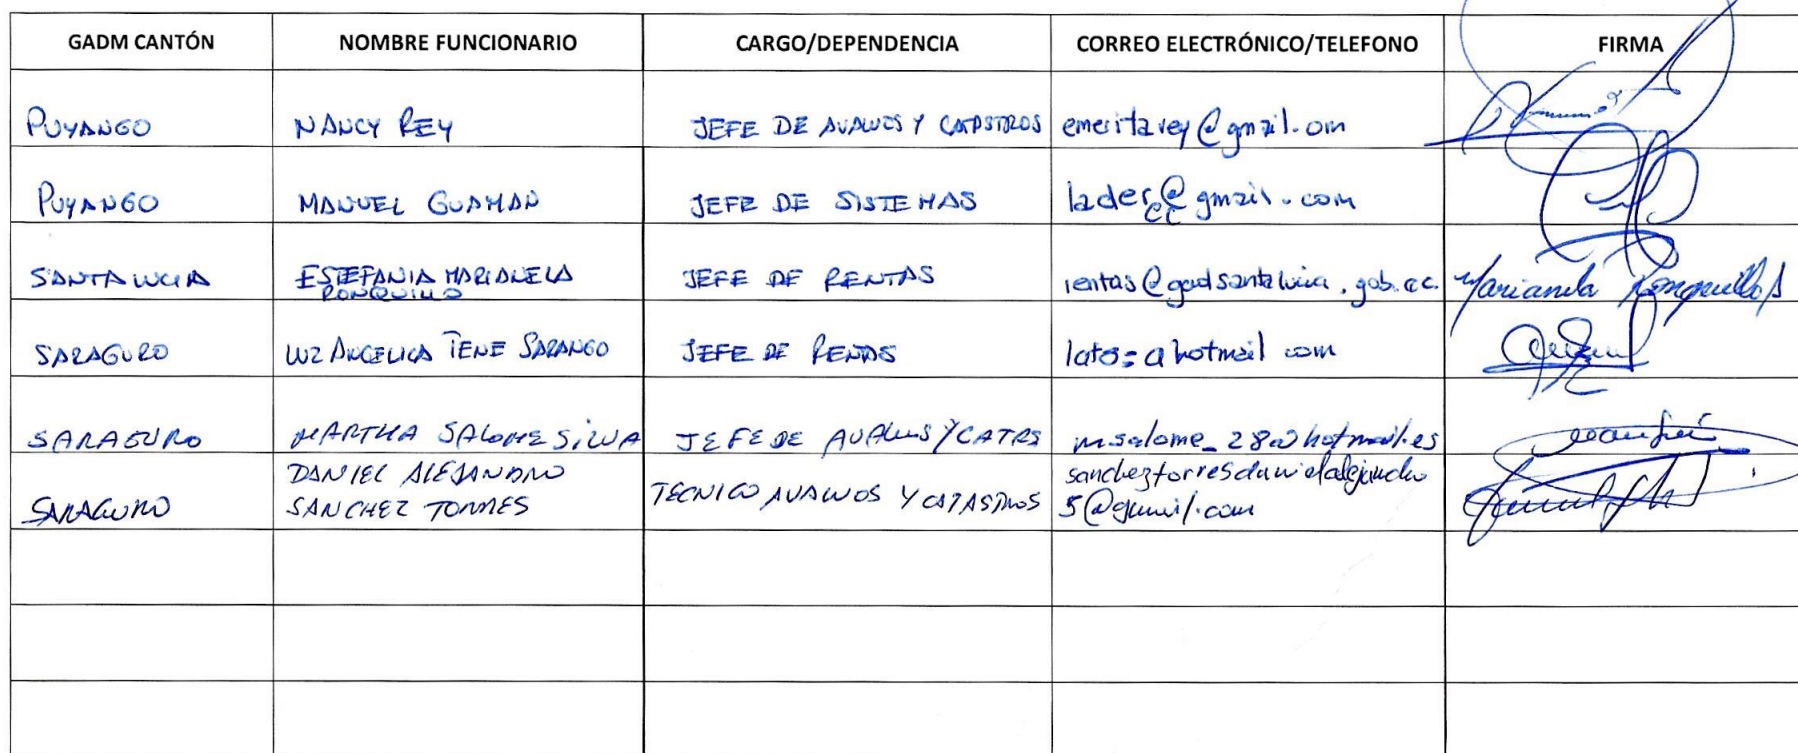 GADM CANTÓN NOMBRE FUNCIONARIO CARGO/DEPENDENCIA CORREO ELECTRÓNICO/TELEFONO FIRMA
PUYANGO NANCY REY JEFE DE AVALUOS Y CATASTROS emeritarey@gmail.om
PUYANGO MANUEL GUAMAN JEFE DE SISTEMAS ladercc@gmail.com
SANTA LUCIA ESTEFANIA MARIANELA JEFE DE RENTAS rentas@gadsantalucia.gob.ec. Marianela Ronquillo
RONQUILLO
SARAGURO LUZ ANGELICA TENE SARANGO JEFE DE RENTAS hotmail com
SARAGURO MARTHA SALOME SILVA JEFE DE AVALUOS Y CATRS m.salome_28@hotmail.es
DANIEL ALEJANDRO sancheztorresdanielalejandro
SARAGURO SANCHEZ TORRES TECNICO AVALUOS Y CATASTROS 5@gmail.com